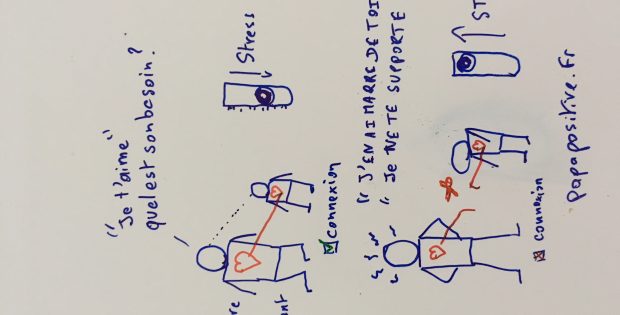 "Je t'aime"
quel est son besoin ?
Stress
connexion
"J'EN AI MARRE DE TOI
"Je NE TE SUPPORTE
ST
connexion
papapositive.fr